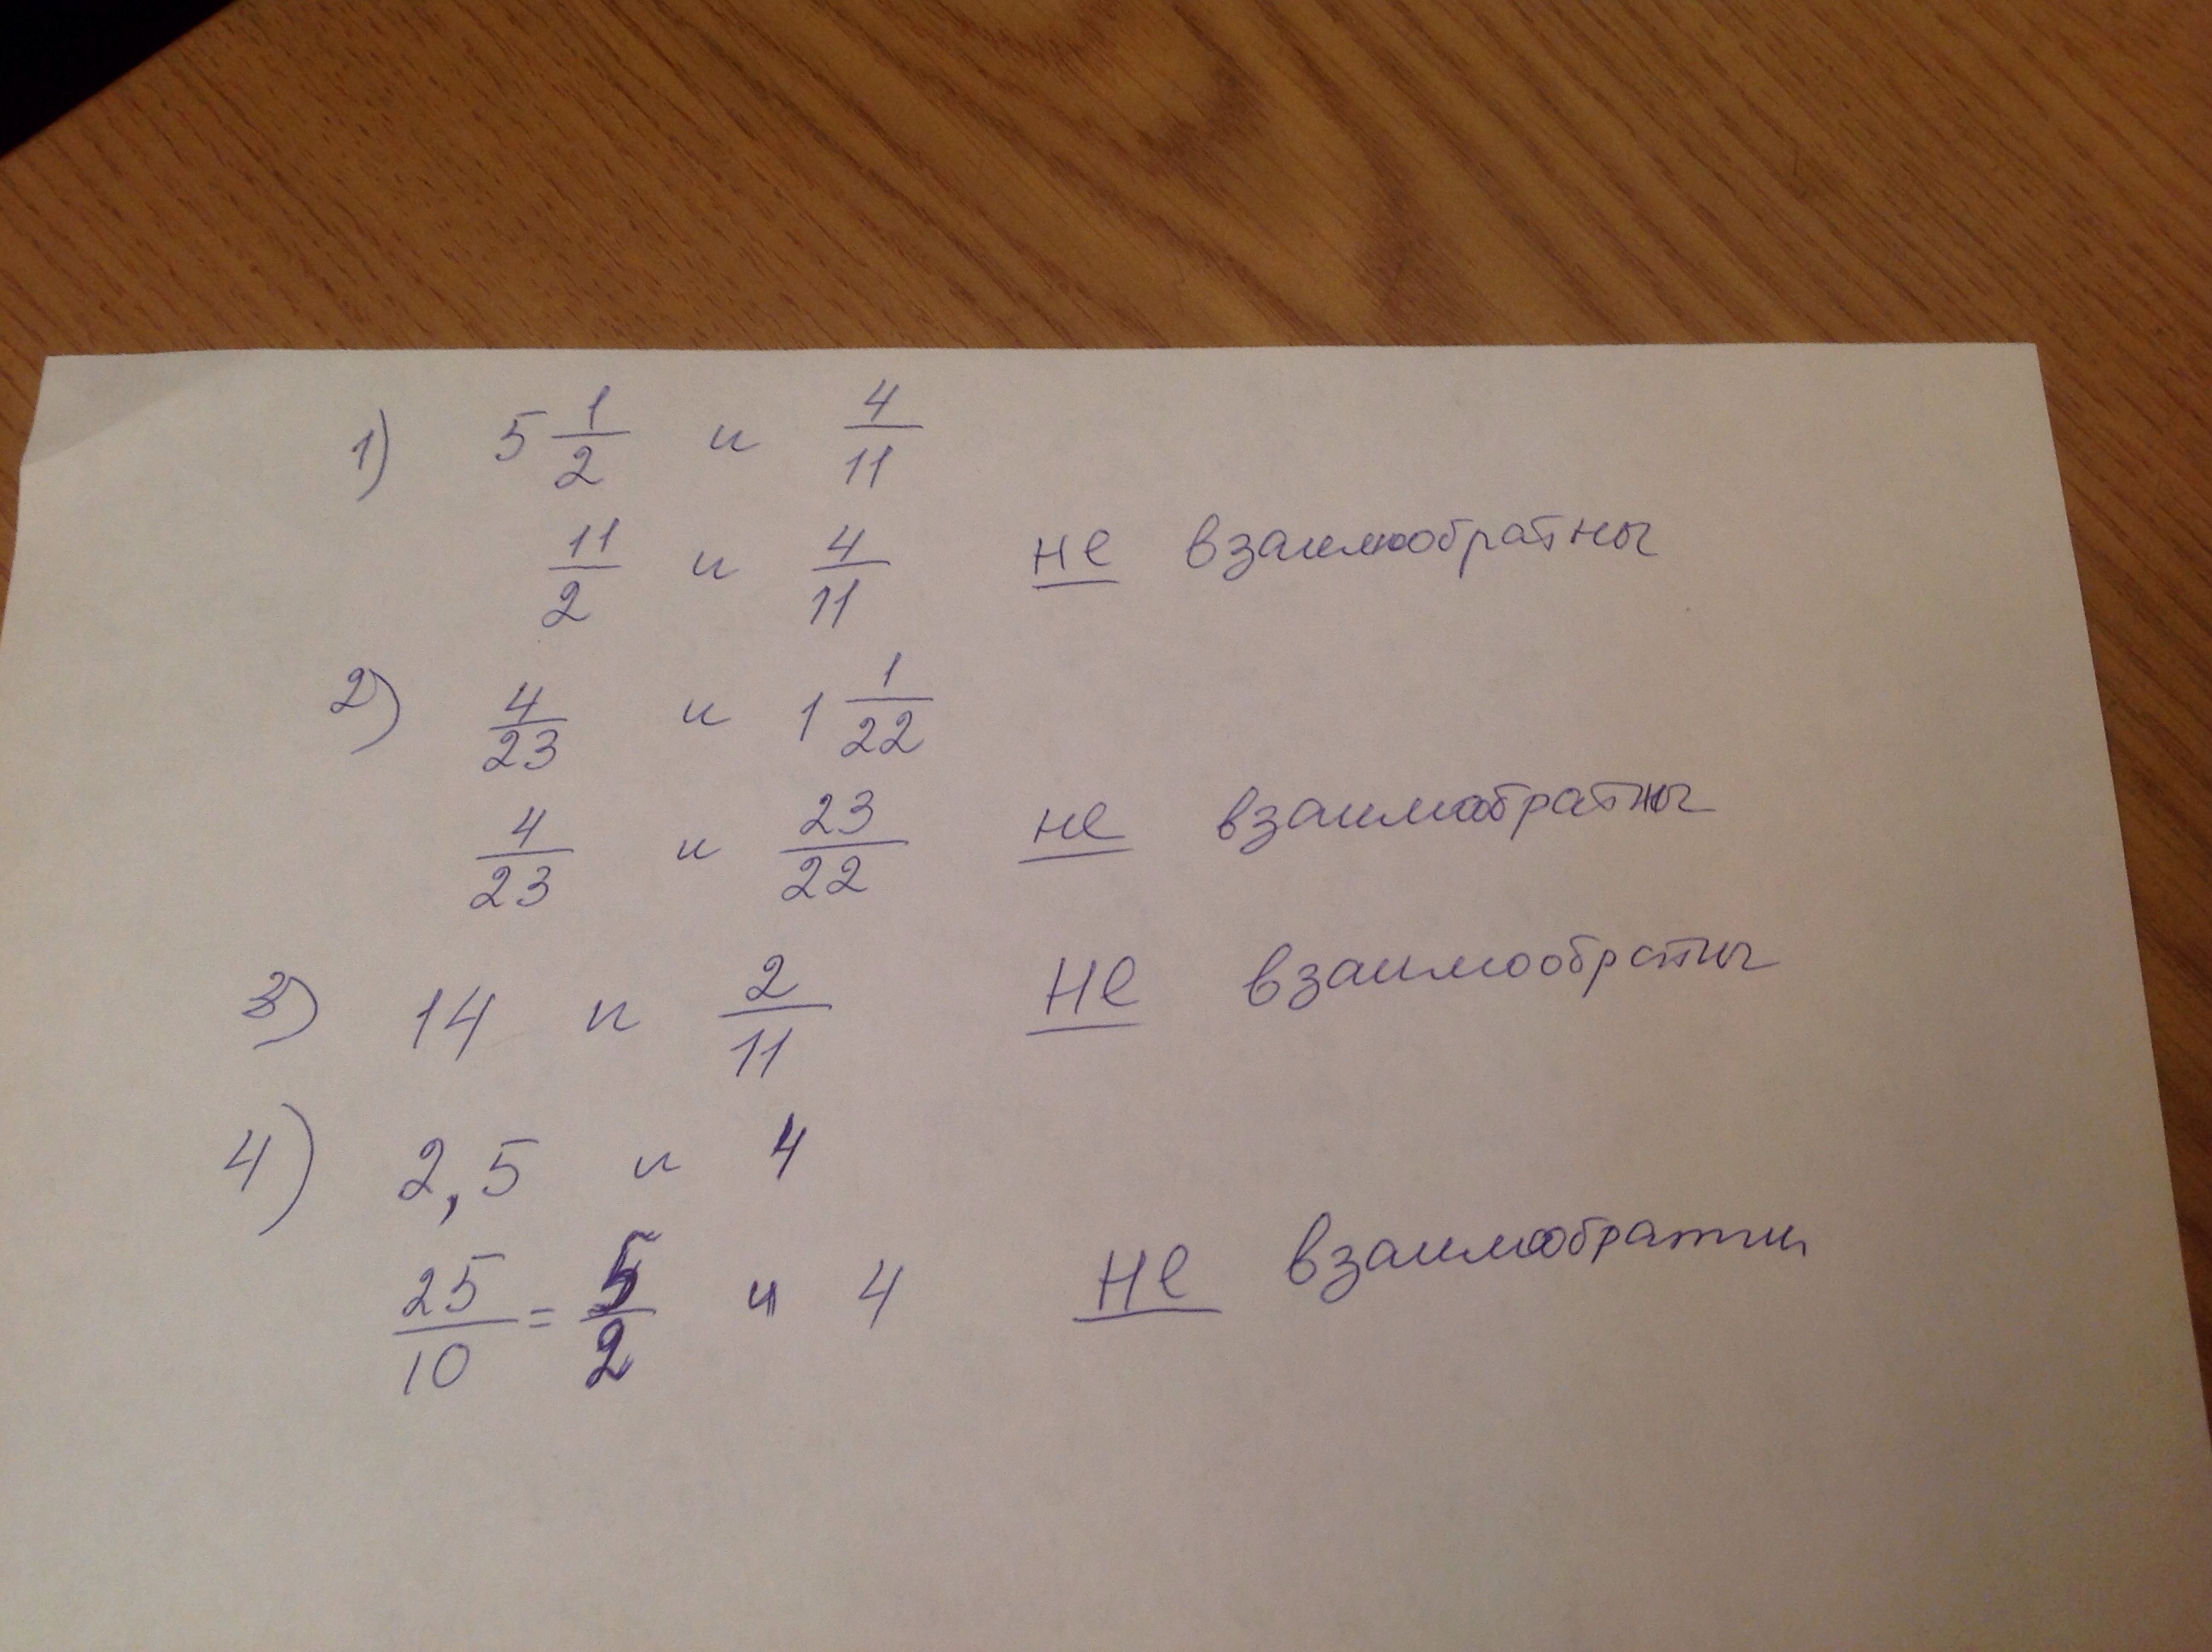 1) 5 1/2 и 4/11
11/2 и 4/11 не взаимообратны
2) 4/23 и 1 1/22
4/23 и 23/22 не взаимообратны
3) 14 и 2/11 не взаимообратны
4) 2,5 и 4
25/10 = 5/2 и 4 не взаимообратны